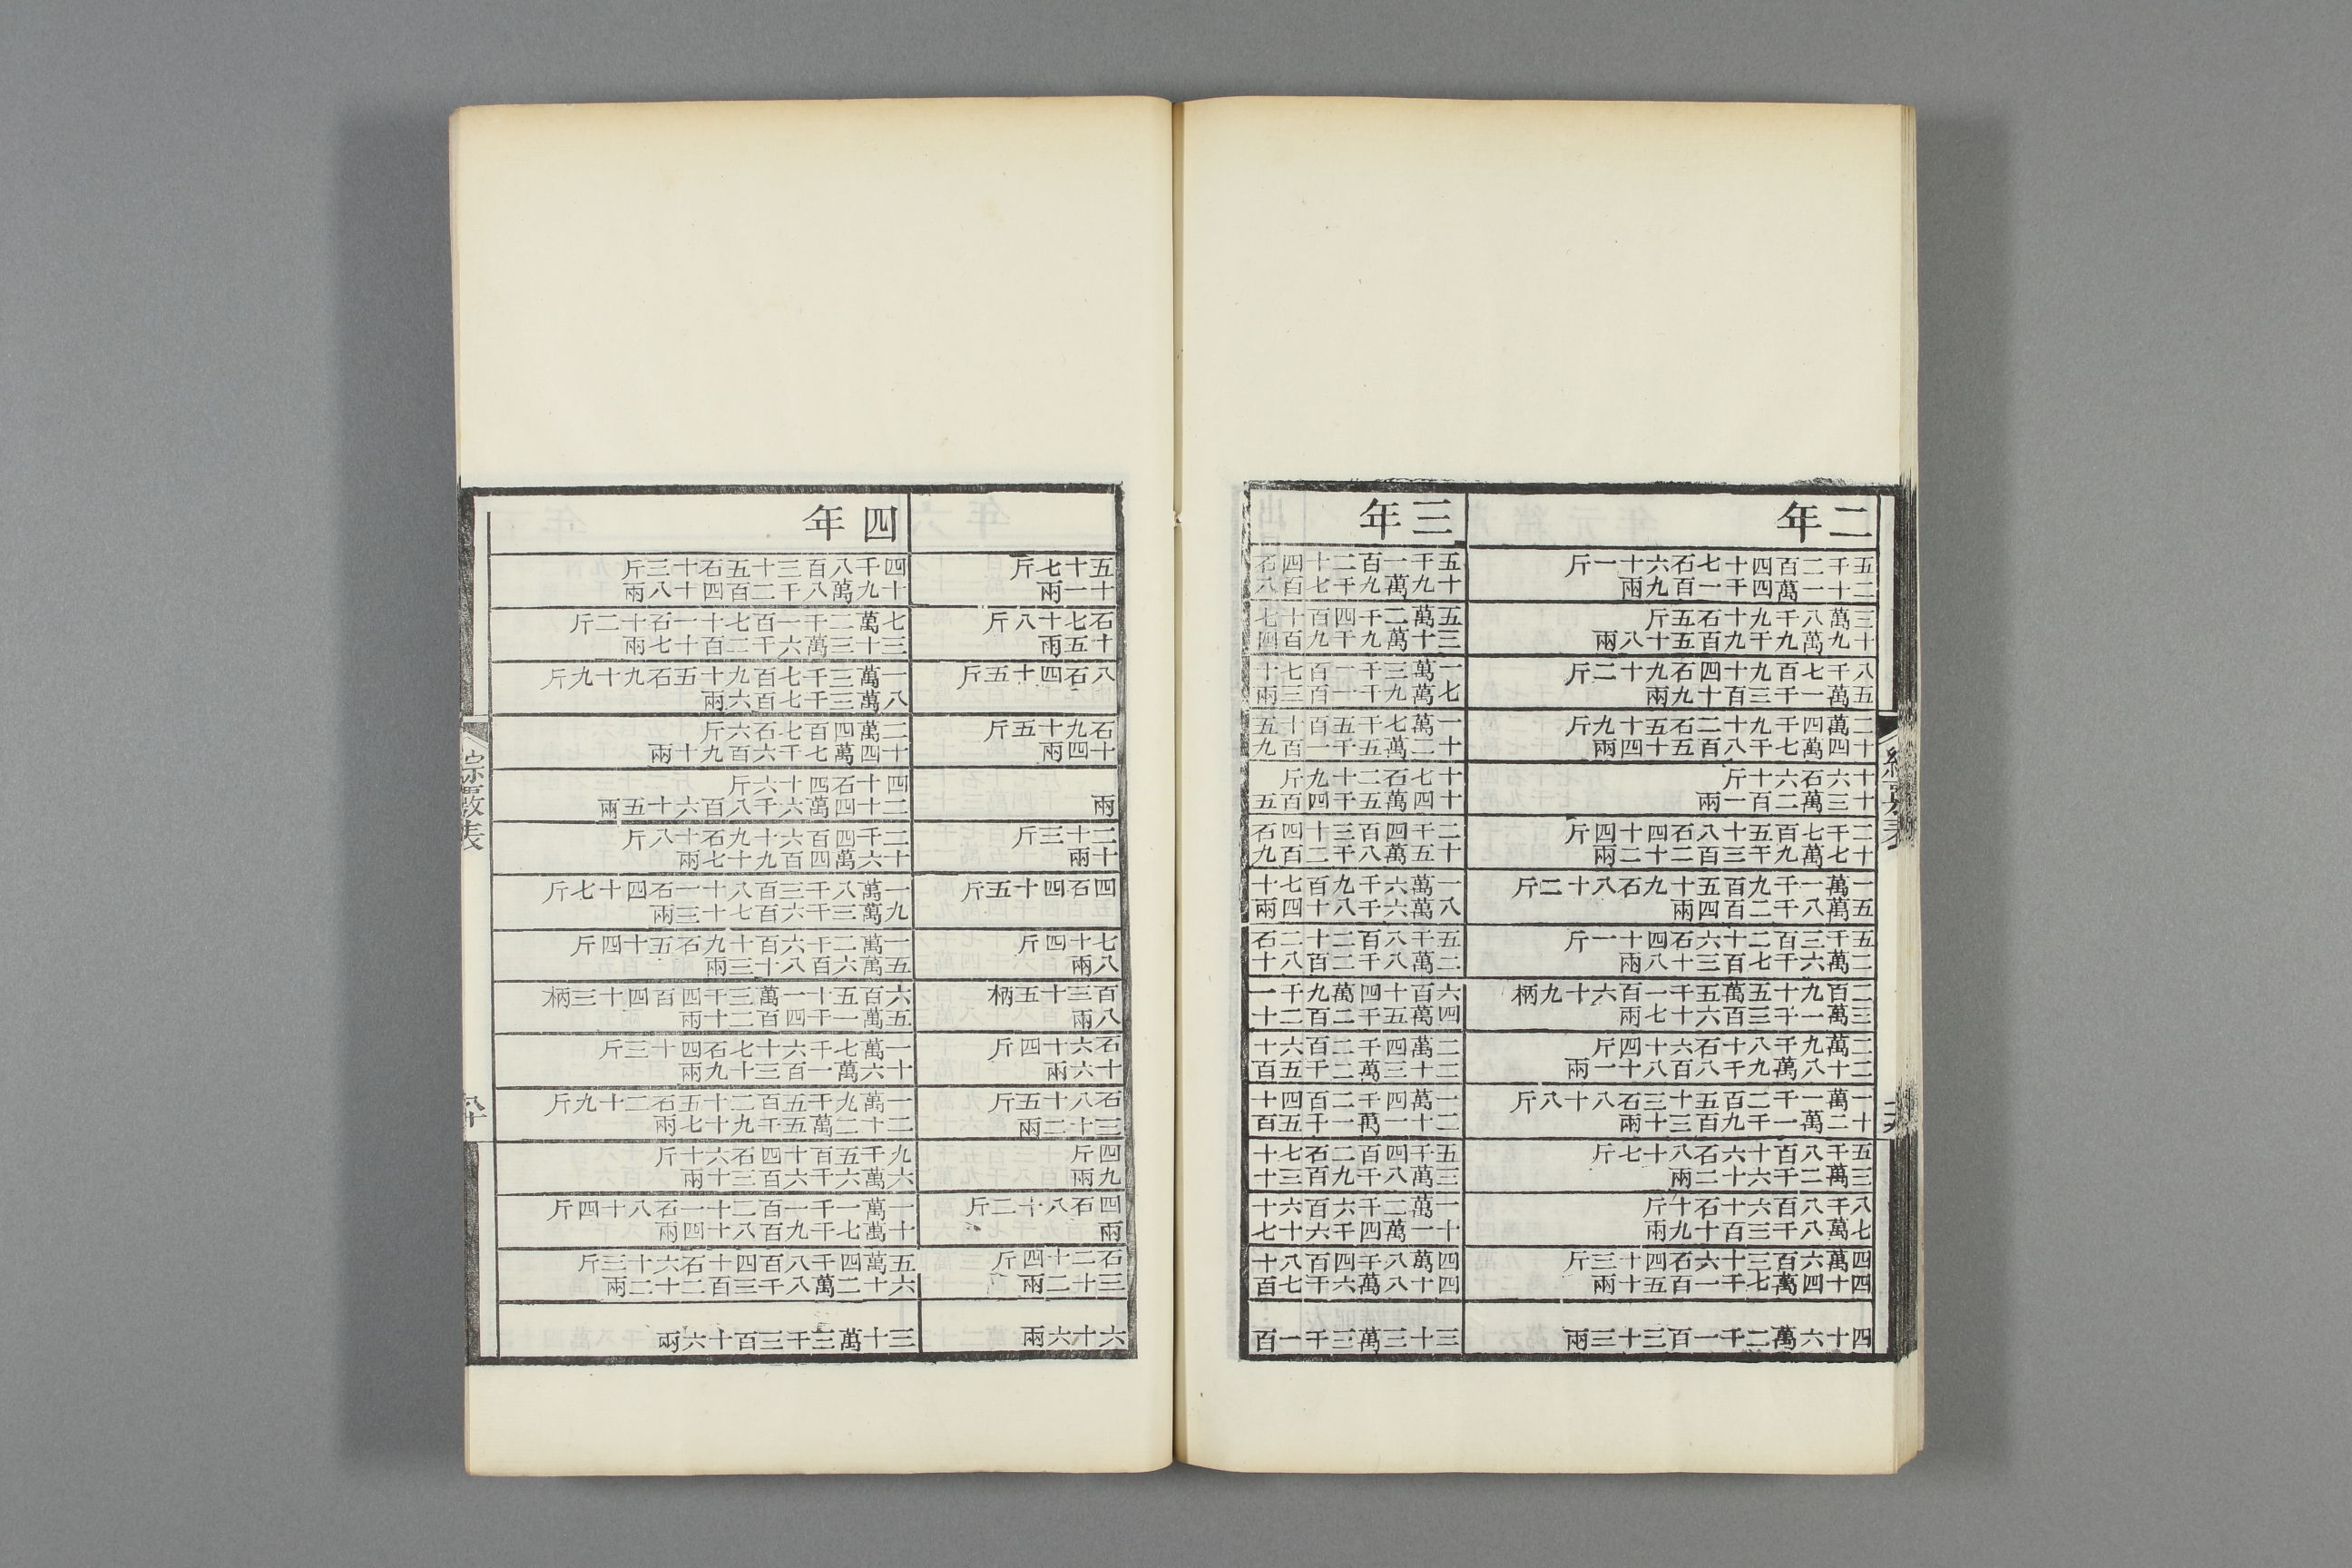 二年
五千二百四十七石六十一斤
二十一萬四千一百九兩
三萬八千九十石五斤
十九萬九千九百五十八兩
八千七百九十四石九十二斤
五萬一千三百十九兩
二萬四千九十二石五十九斤
十四萬七千八百五十四兩
十六石六十斤
十三萬二百一兩
二千七百五十八石四十四斤
十七萬九千三百二十二兩
一萬一千九百五十九石八十二斤
五萬八千二百四兩
五千三百二十六石四十一斤
二萬六千七百三十八兩
二百九十五萬五千一百六十九柄
三萬一千三百六十七兩
二萬九千八十六石六十四斤
二十八萬九千八百八十一兩
一萬一千二百五十三石八十八斤
十二萬一千九百三十兩
五千八百十六石八十七斤
三萬二千六十二兩
八千八百六十石十斤
七萬八千三百十九兩
四萬六百三十六石四十三斤
四十四萬七千一百五十兩
四十六萬二千一百三十三兩
三年
五千一百二十四石
十九萬九千七百八
五萬二千四百十七
三十萬九千九百四
一萬三千一百七十
七萬九千一百三兩
一萬七千五百十五
十二萬五千一百九
十七石二十九斤
十四萬五千四百五
二千四百三十四石
十五萬八千二百九
一萬六千九百七十
八萬六千八十四兩
五千八百二十二石
二萬八千二百八十
六百十四萬九千一
四萬五千二百二十
二萬四千二百六十
二十三萬二千五百
一萬四千二百四十
二十一萬一千五百
五千四百二石七十
三萬八千九百三十
一萬二千六百六十
十一萬四千六十七
四萬八千四百八十
四十八萬六千七百
三十三萬三千一百
五十七斤
十一兩
石七十八斤
十五兩
八石四十五斤
石九十五斤
十四兩
兩
二十三斤
十兩
四石四十五斤
七十四斤
八兩
百三十五柄
八兩
石六十四斤
十六兩
石八十五斤
三十二兩
四斤
九兩
四石八十二斤
兩
石二十四斤
三十二兩
六十六兩
四年
四千八百三十五石十三斤
十九萬八千二百四十八兩
七萬二千一百七十一石十二斤
三十三萬六千二百十七兩
一萬三千七百九十五石九十九斤
八萬三千七百六兩
二萬四百七石六斤
十四萬七千六百九十兩
四十石四十六斤
二十四萬六千八百六十五兩
二千四百六十九石十八斤
十六萬四百九十七兩
一萬八千三百八十一石四十七斤
九萬三千六百七十三兩
一萬二千六百十九石五十四斤
五萬六百八十三兩
六百五十一萬三千四百四十三柄
五萬一千四百二十兩
一萬七千六十七石四十三斤
十六萬一百三十九兩
一萬九千五百二十五石二十九斤
二十二萬五千九十七兩
九千五百十四石六十斤
六萬六千六百三十兩
一萬一千一百二十一石八十四斤
十萬七千九百八十四兩
五萬四千八百四十石六十三斤
六十二萬八千三百二十二兩
三十萬三千三百十六兩